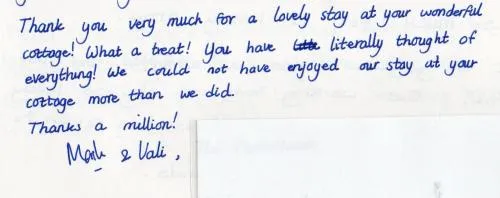 Thank you very much for a lovely stay at your wonderful
cottage! What a treat! You have literally thought of
everything! We could not have enjoyed our stay at your
cottage more than we did.
Thanks a million!
Mark & Vali,